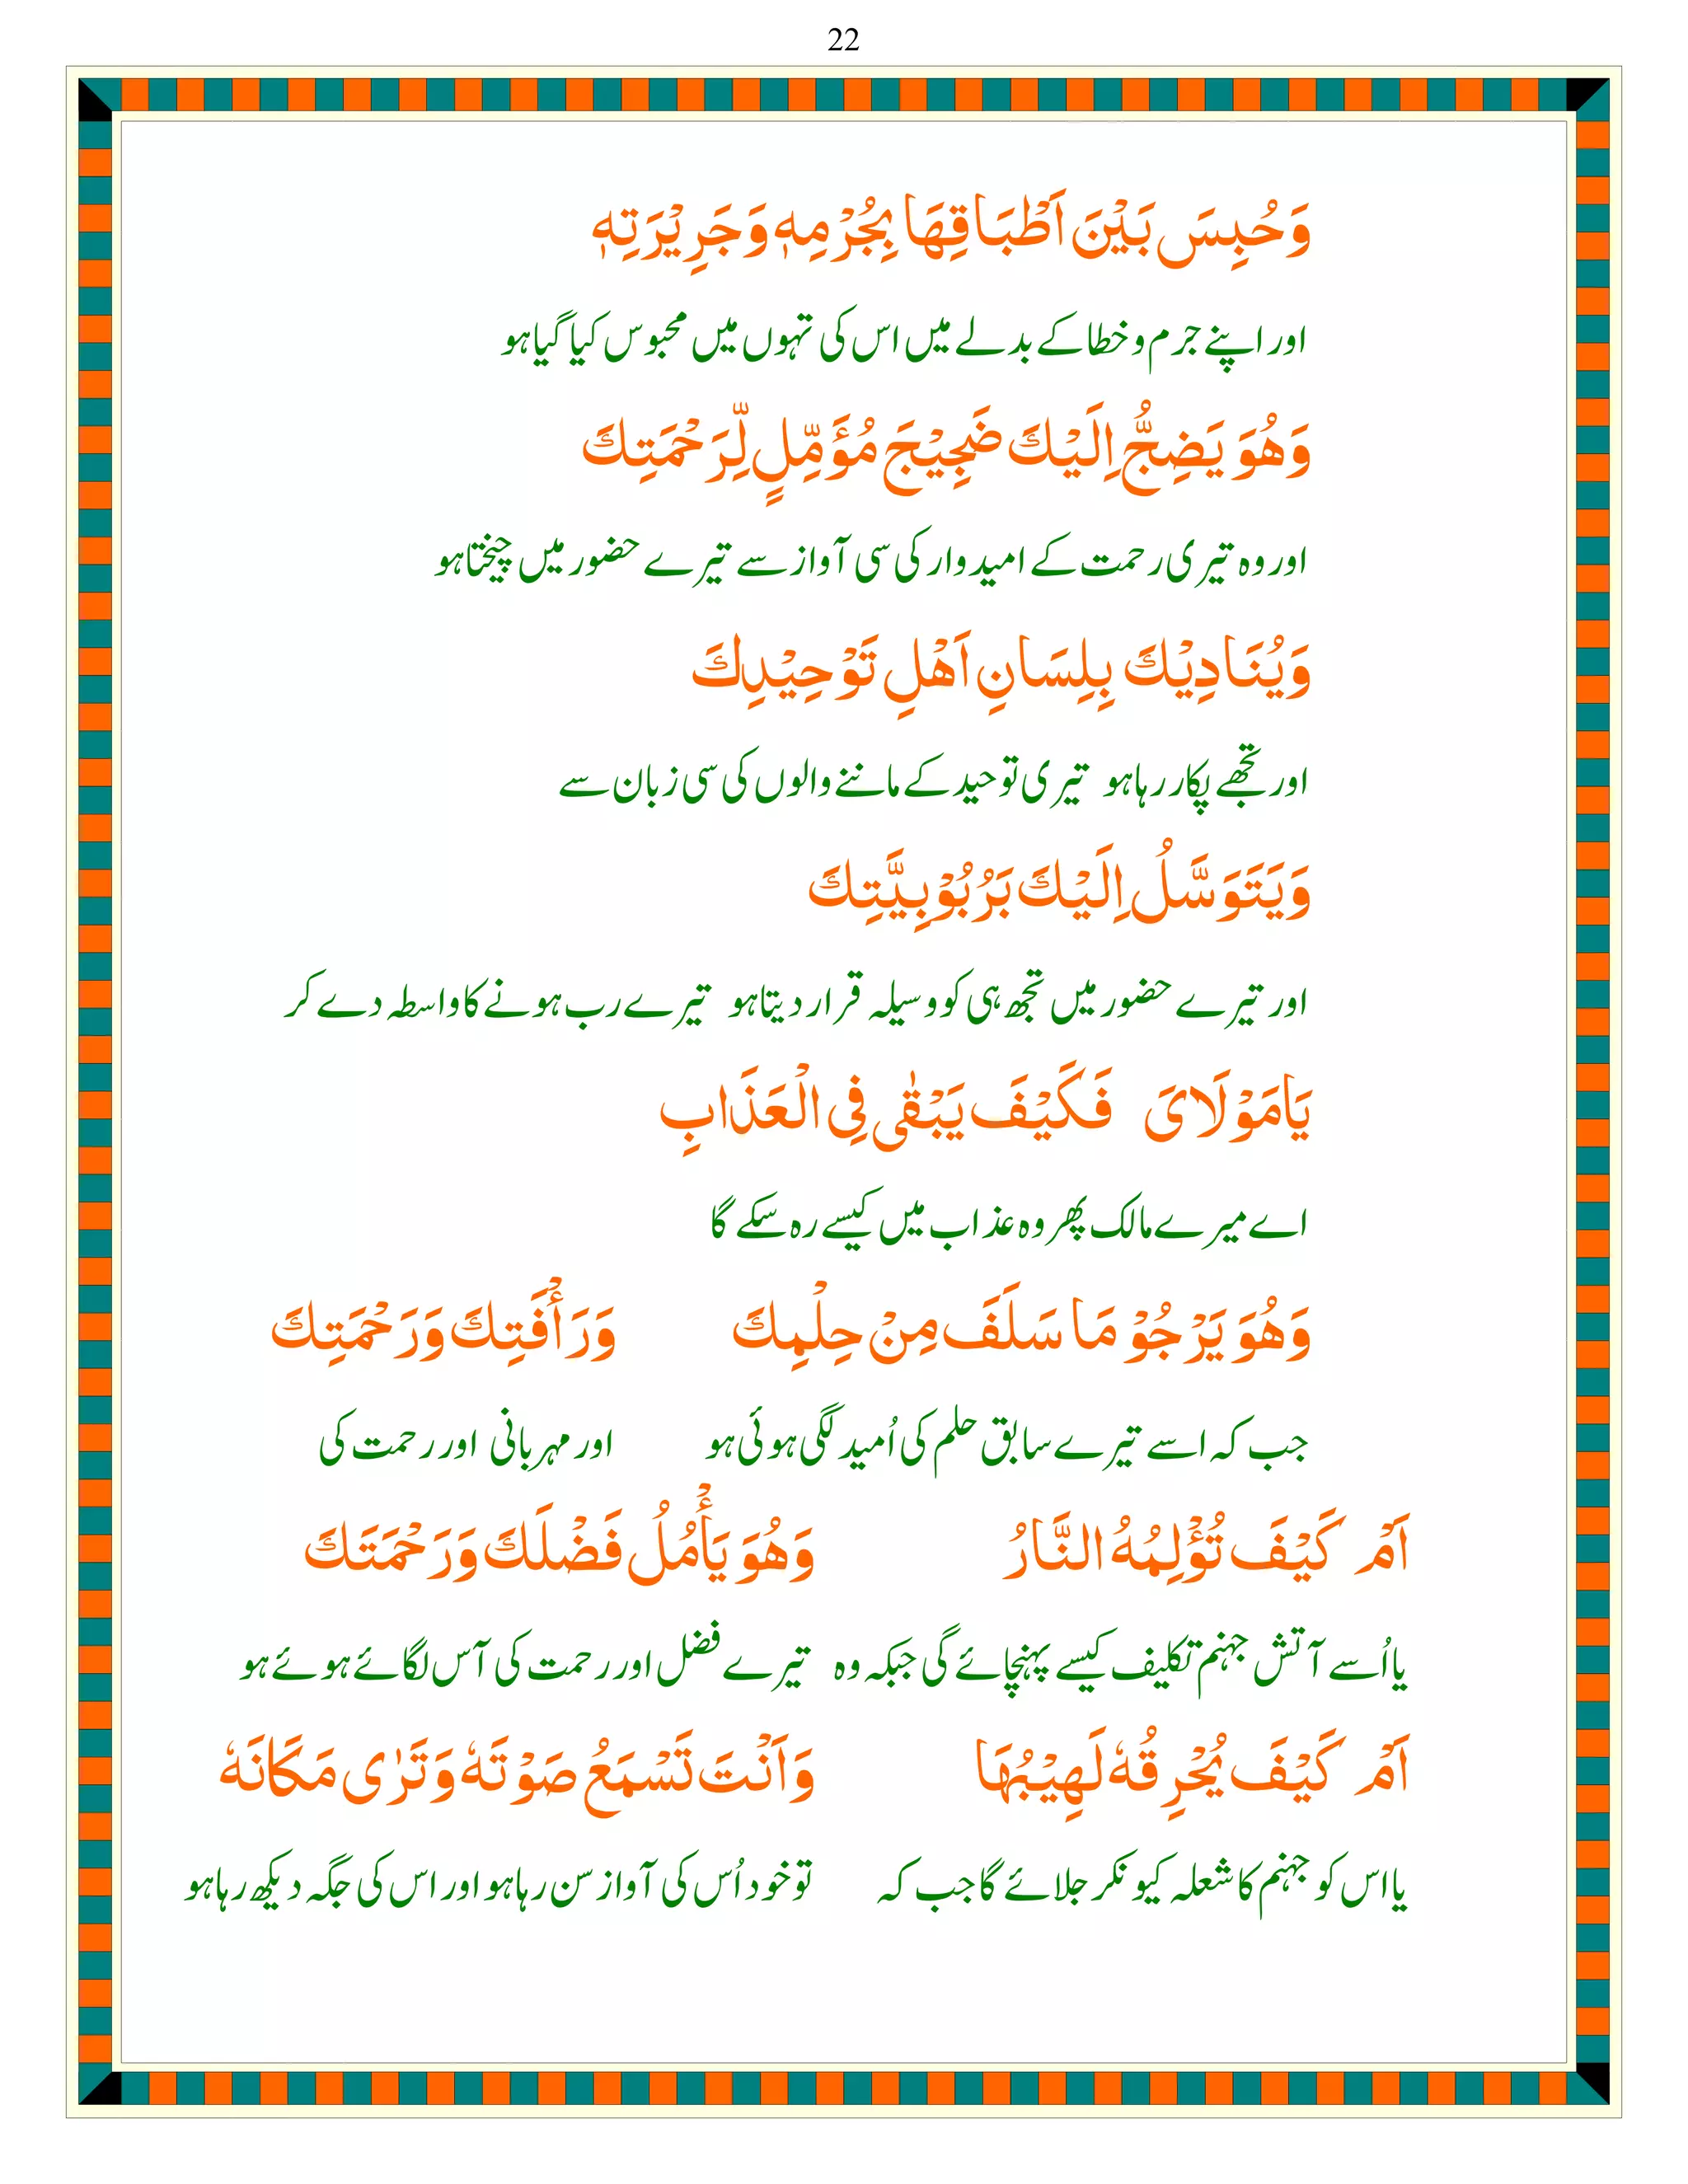 22
وَحُبِسَ بَيْنَ اَطْبَاقِهَا بِجُرْمِهٖ وَجَرِيْرَتِهٖ
اور اپنے جرم و خطا کے بدلے میں اس کی تہوں میں محبوس کیا گیا ہو
وَهُوَ يَضِجُّ اِلَيْكَ ضَجِيْجَ مُؤَمِّلٍ لِّرَحْمَتِكَ
اور وہ تیری رحمت کے امیدوار کی سی آواز سے تیرے حضور میں چیختا ہو
وَيُنَادِيْكَ بِلِسَانِ اَهْلِ تَوْحِيْدِكَ
اور تجھے پکار رہا ہو تیری توحید کے ماننے والوں کی سی زبان سے
وَيَتَوَسَّلُ اِلَيْكَ بَرُبُوْبِيَّتِكَ
اور تیرے حضور میں تجھ ہی کو وسیلہ قرار دیتا ہو تیرے رب ہونے کا واسطہ دے کر
يَامَوْلَاىَ فَكَيْفَ يَبْقٰى فِى الْعَذَابِ
اے میرے مالک پھر وہ عذاب میں کیسے رہ سکے گا
وَهُوَ يَرْجُوْ مَا سَلَفَ مِنْ حِلْمِكَ وَرَأْفَتِكَ وَرَحْمَتِكَ
جب کہ اسے تیرے سابق حلم کی اُمید لگی ہوئی ہو اور مہربانی اور رحمت کی
اَمْ كَيْفَ تُؤْلِمُهُ النَّارُ وَهُوَ يَأْمُلُ فَضْلَكَ وَرَحْمَتَكَ
یا اُسے آتش جہنم تکلیف کیسے پہنچائے گی جبکہ وہ تیرے فضل اور رحمت کی آس لگائے ہوئے ہو
اَمْ كَيْفَ يُحْرِقُهٗ لَهِيْبُهَا وَاَنْتَ تَسْمَعُ صَوْتَهٗ وَتَرٰى مَكَانَهٗ
یا اس کو جہنم کا شعلہ کیونکر جلائے گا جب کہ تو خود اُس کی آواز سن رہا ہو اور اس کی جگہ دیکھ رہا ہو